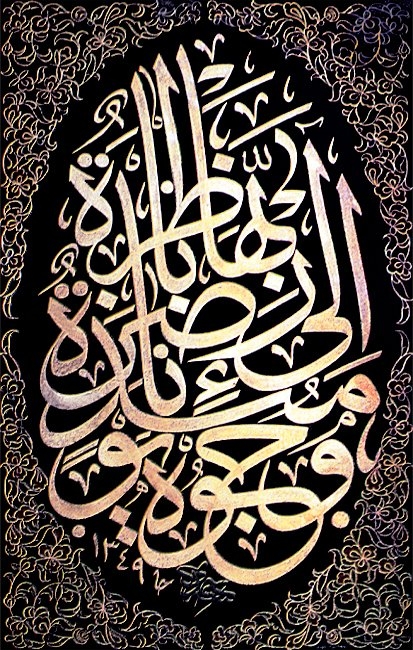 وُجُوهٌ يَوْمَئِذٍ نَاضِرَةٌ
إِلَى رَبِّهَا نَاظِرَةٌ
١٣٤٩